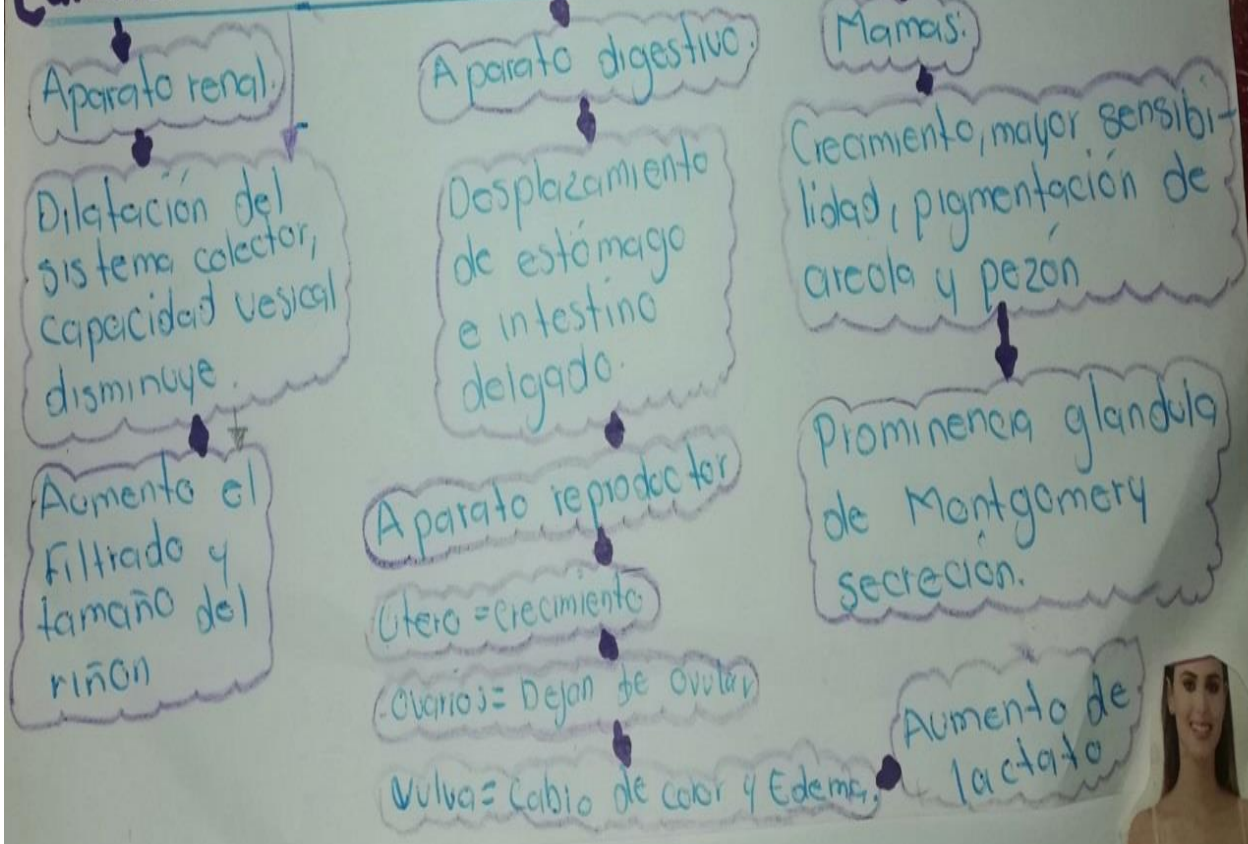 Aparato renal.
Dilatación del
sistema colector,
capacidad vesical
disminuye.
Aumenta el
Filtrado y
tamaño del
riñón
Aparato digestivo.
Desplazamiento
de estómago
e intestino
delgado.
Aparato reproductor
Utero = crecimiento
Ovarios = Dejan de ovular
Vulva = Cabio de color y Edema.
Aumento de
lactato
Mamas:
Crecimiento, mayor sensibi-
lidad, pigmentación de
areola y pezón
Prominencia glandula
de Montgomery
secreción.